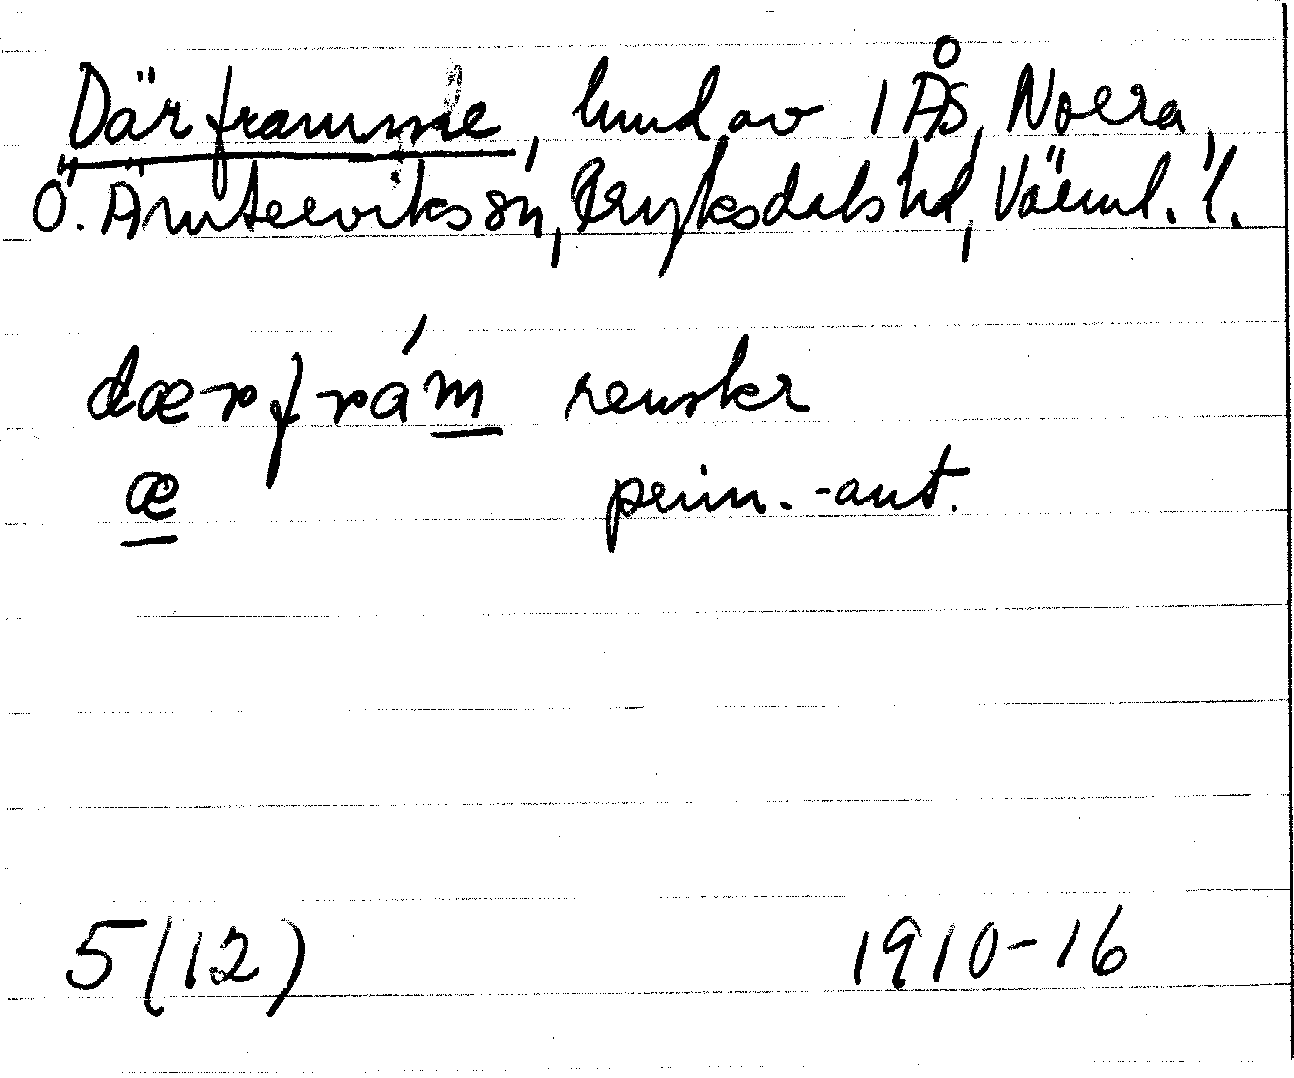 Därframme, hmd. av 1 Ås, Norra,
Ö. Ämterviks sn, Fryksdals hd, Värml. l.
dærfrám renskr
æ prim.-ant.
5(12) 1910-16